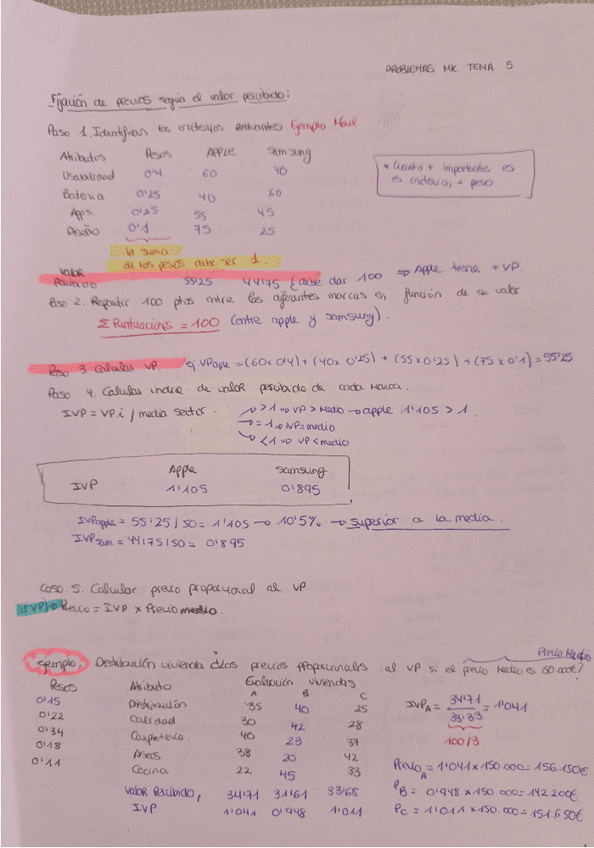 PROBLEMAS MK TEMA 5
Fijación de precios según el valor percibido:
Paso 1. Identificar los criterios relevantes. Ejemplo Móvil
Atributos Pesos APPLE Samsung
Usabilidad 0'4 60 40
Batería 0'25 40 60
Apps 0'25 55 45
Diseño 0'1 75 25
* Cuanto + importante es
es criterio, + peso
la suma
de los pesos debe ser 1.
Valor
Percibido 55'25 44'75 { debe dar 100 ⇒ Apple tiene + VP.
Paso 2. Repartir 100 ptos entre las diferentes marcas en función de su valor
Σ Puntuaciones = 100 (entre apple y samsung).
Paso 3 Calcular VP ej. VPapple = (60x0'4) + (40x 0'25) + (55x0'25) + (75x0'1) = 55'25
Paso 4. Calcular índice de valor percibido de cada marca.
IVP = VP i / media sector. > 1 ⇒ VP > Medio → apple 1'105 > 1.
= 1 ⇒ VP = medio
< 1 ⇒ VP < medio
Apple Samsung
IVP 1'105 0'895
IVPapple = 55'25 / 50 = 1'105 → 10'5% → superior a la media.
IVPsam = 44'75 / 50 = 0'895
Caso 5. Calcular precio proporcional al VP
Precio = IVP x Precio medio.
Precio Medio
ejemplo. Distribución vivienda ¿los precios proporcionales al VP si el precio medio es 150.000€?
Pesos Atributo Evaluación viviendas
A B C
0'15 Distribución 35 40 25
0'22 Calidad 30 42 28
0'34 Carpintería 40 23 37
0'18 Aseos 38 20 42
0'11 Cocina 22 45 33
Valor Percibido, 34'71 31'61 33'68
IVP 1'041 0'948 1'011
IVPA = 34'71 / 33'33 = 1'041
100/3
Precio A = 1'041 x 150.000 = 156.150€
PB = 0'948 x 150.000 = 142.200€
PC = 1'011 x 150.000 = 151.650€